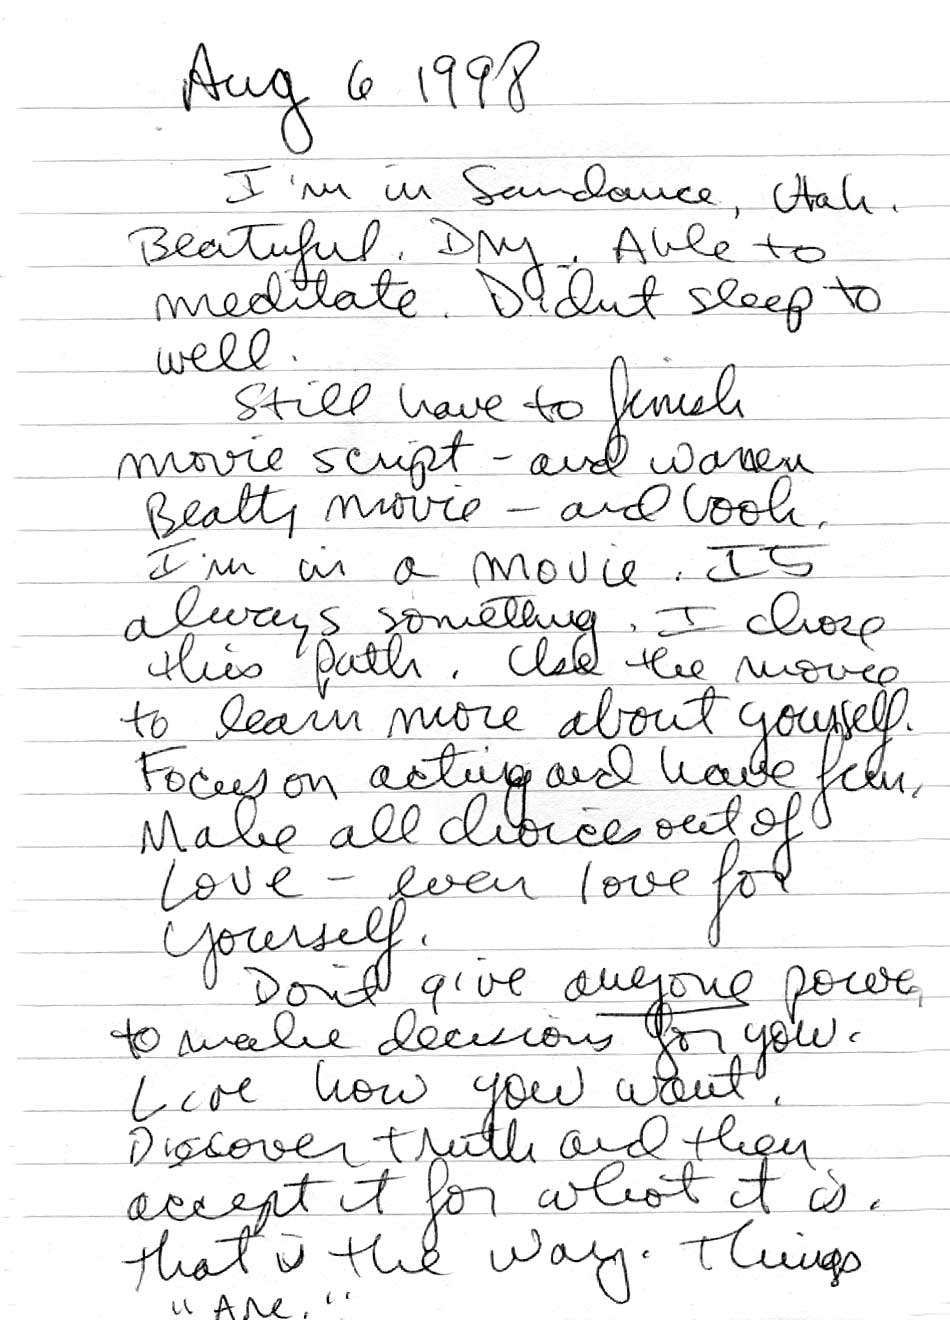 Aug 6 1998
I'm in Sundance, Utah.
Beatuful. Dry. Able to
meditate. Didnt sleep to
well.
Still have to finish
movie script - and warren
Beatty movie - and book.
I'm in a movie. ITS
always something. I chose
this path. Use the movie
to learn more about yourself.
Focus on acting and have fun.
Make all choices out of
Love - even love for
yourself.
Don't give anyone power
to make decisions for you.
Live how you want.
Discover truth and then
accept it for what it is.
that is the way. Things
"Are."